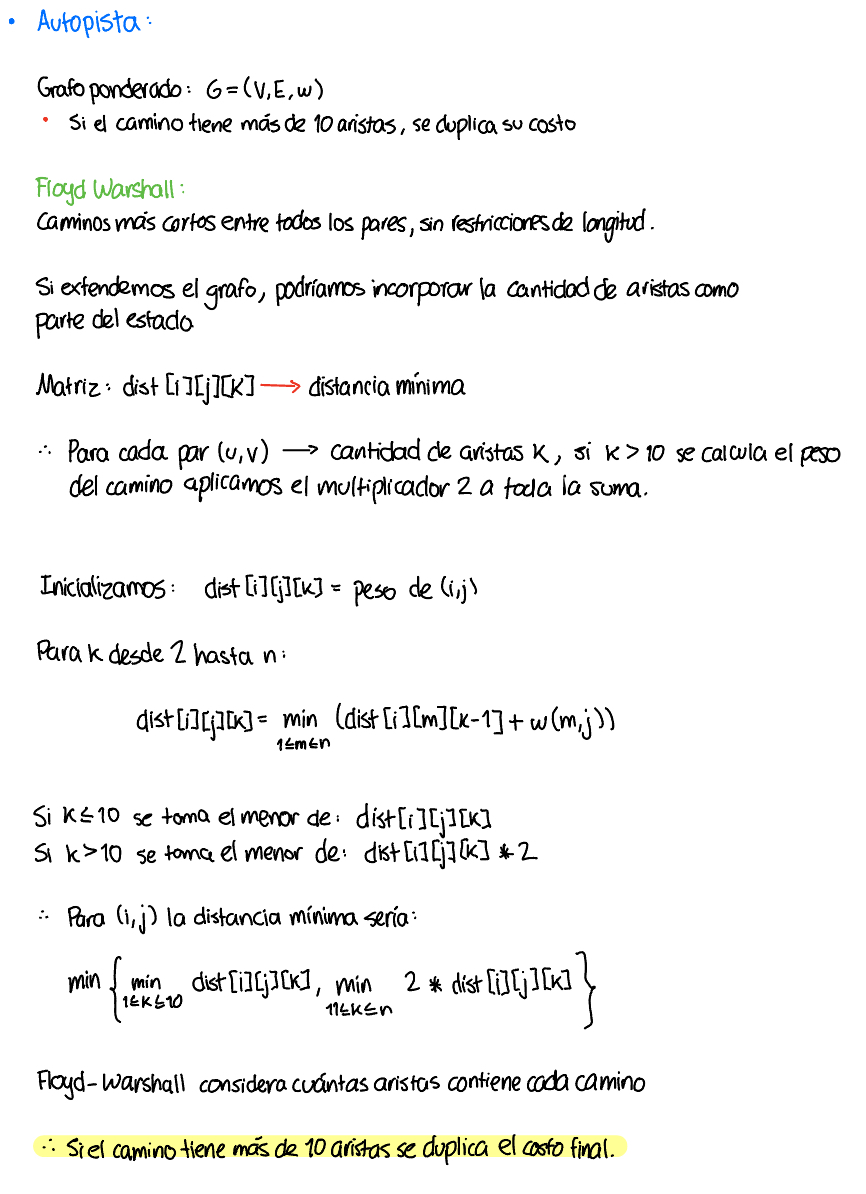 • Autopista:
Grafo ponderado: G=(V,E,w)
• Si el camino tiene más de 10 aristas, se duplica su costo
Floyd Warshall:
Caminos más cortos entre todos los pares, sin restricciones de longitud.
Si extendemos el grafo, podríamos incorporar la cantidad de aristas como
parte del estado
Matriz: dist [i][j][k] → distancia mínima
∴ Para cada par (u,v) → cantidad de aristas k, si k > 10 se calcula el peso
del camino aplicamos el multiplicador 2 a toda la suma.
Inicializamos: dist [i][j][k] = peso de (i,j)
Para k desde 2 hasta n:
dist[i][j][k] = min (dist[i][m][k-1] + w(m,j))
1≤m≤n
Si k≤10 se toma el menor de: dist[i][j][k]
Si k>10 se toma el menor de: dist[i][j][k] * 2
∴ Para (i,j) la distancia mínima sería:
min { min dist[i][j][k], min 2 * dist[i][j][k] }
1≤k≤10 11≤k≤n
Floyd-Warshall considera cuántas aristas contiene cada camino
∴ Si el camino tiene más de 10 aristas se duplica el costo final.